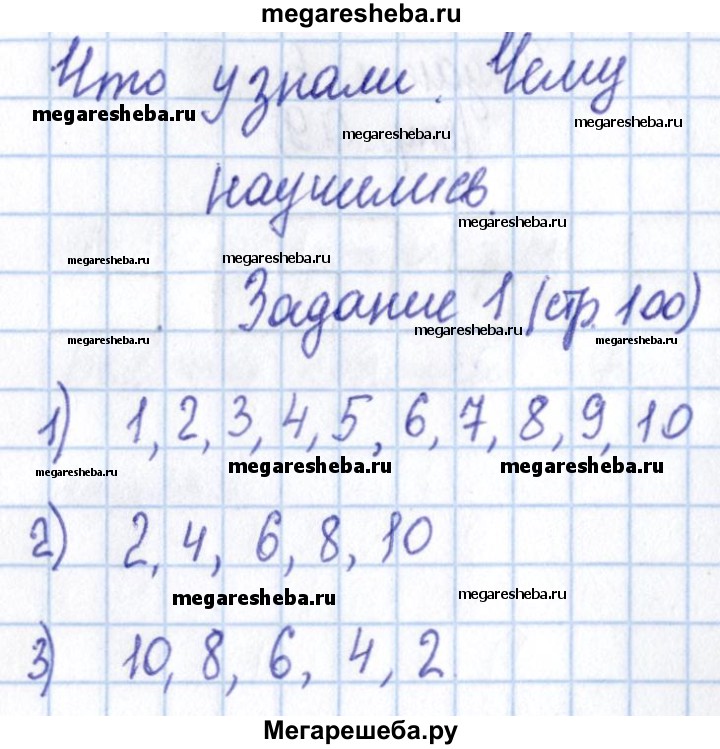 megaresheba.ru
Что узнали. Чему
megaresheba.ru
megaresheba.ru
megaresheba.ru
научились.
megaresheba.ru
megaresheba.ru
megaresheba.ru
Задание 1 (стр. 100)
megaresheba.ru
megaresheba.ru
megaresheba.ru
1) 1, 2, 3, 4, 5, 6, 7, 8, 9, 10
megaresheba.ru
megaresheba.ru
megaresheba.ru
2) 2, 4, 6, 8, 10
megaresheba.ru
megaresheba.ru
3) 10, 8, 6, 4, 2
Мегарешеба.ру